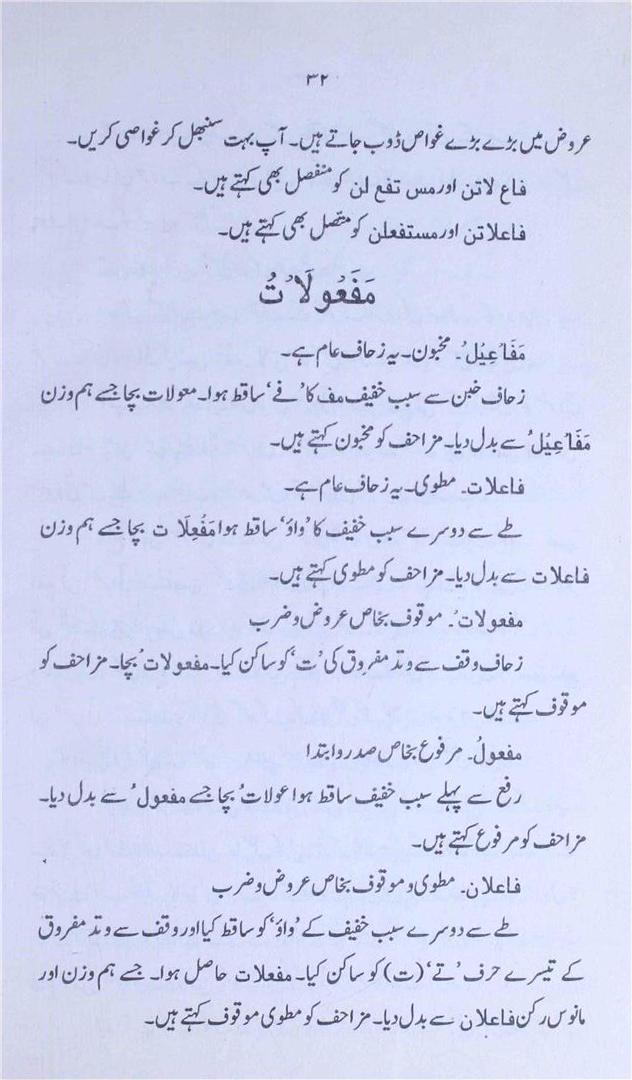 ۳۲
عروض میں بڑے بڑے غواص ڈوب جاتے ہیں۔ آپ بہت سنبھل کر غواصی کریں۔
فاع لاتن اور مس تفع لن کو منفصل بھی کہتے ہیں۔
فاعلاتن اور مستفعلن کو متصل بھی کہتے ہیں۔
مَفْعُولَاتُ
مَفَاعِیْلُ۔ مخبون۔ یہ زحاف عام ہے۔
زحاف خبن سے سبب خفیف مف کا ’فے‘ ساقط ہوا۔ معولات بچا جسے ہم وزن
مَفَاعِیْلُ سے بدل دیا۔ مزاحف کو مخبون کہتے ہیں۔
فاعلات۔ مطوی۔ یہ زحاف عام ہے۔
طے سے دوسرے سبب خفیف کا ’واؤ‘ ساقط ہوا مَفْعِلَا ت بچا جسے ہم وزن
فاعلات سے بدل دیا۔ مزاحف کو مطوی کہتے ہیں۔
مفعولات۔ موقوف بخاص عروض و ضرب
زحاف وقف سے وتد مفروق کی ’ت‘ کو ساکن کیا۔ مفعولات بچا۔ مزاحف کو
موقوف کہتے ہیں۔
مفعولُ۔ مرفوع بخاص صدر و ابتدا
رفع سے پہلے سبب خفیف ساقط ہوا عولاتُ بچا جسے مفعولُ سے بدل دیا۔
مزاحف کو مرفوع کہتے ہیں۔
فاعلان۔ مطوی و موقوف بخاص عروض و ضرب
طے سے دوسرے سبب خفیف کے ’واؤ‘ کو ساقط کیا اور وقف سے وتد مفروق
کے تیسرے حرف ’تے‘ (ت) کو ساکن کیا۔ مفعلات حاصل ہوا۔ جسے ہم وزن اور
مانوس رکن فاعلان سے بدل دیا۔ مزاحف کو مطوی موقوف کہتے ہیں۔